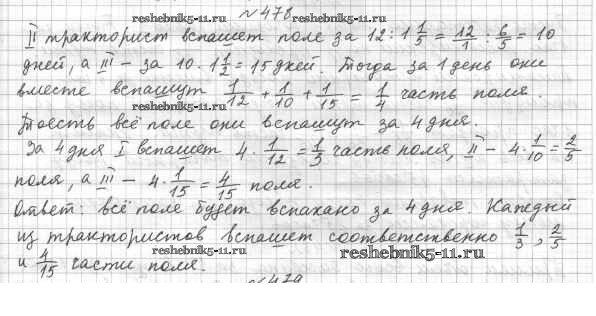 №478
reshebnik5-11.ru
II тракторист вспашет поле за 12 : 1 1/5 = 12/1 : 6/5 = 10
дней, а III – за 10 · 1 1/2 = 15 дней. Тогда за 1 день они
вместе вспашут 1/12 + 1/10 + 1/15 = 1/4 часть поля.
reshebnik5-11.ru
Тоесть всё поле они вспашут за 4 дня.
За 4 дня I вспашет 4 · 1/12 = 1/3 часть поля, II – 4 · 1/10 = 2/5
поля, а III – 4 · 1/15 = 4/15 поля.
Ответ: всё поле будет вспахано за 4 дня. Каждый
из трактористов вспашет соответственно 1/3, 2/5
и 4/15 части поля.
reshebnik5-11.ru
reshebnik5-11.ru
№479